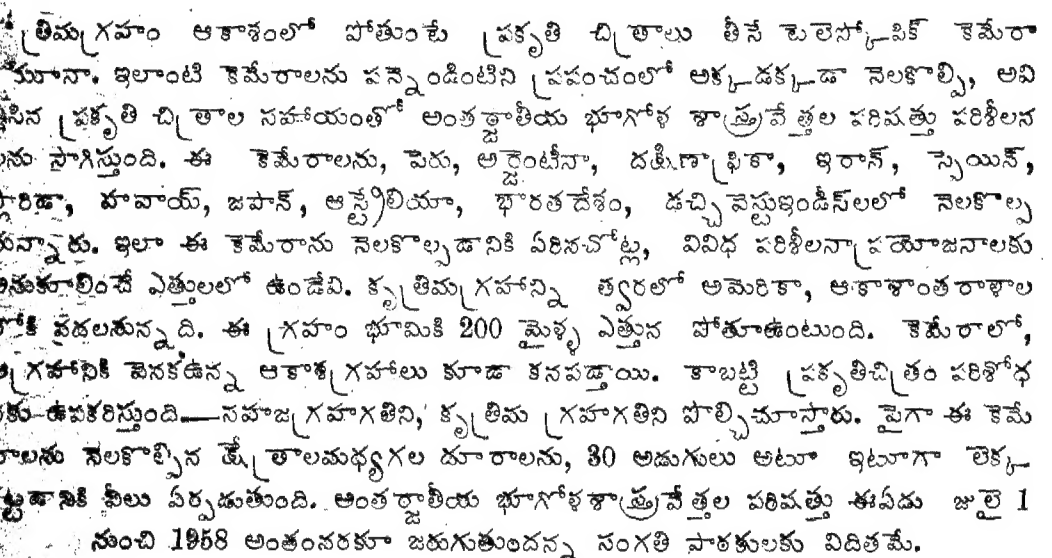 త్రిమగ్రహం ఆకాశంలో పోతుంటే ప్రకృతి చిత్రాలు తీసే టెలెస్కోపిక్ కెమేరా
మూనా. ఇలాంటి కెమేరాలను పన్నెండింటిని ప్రపంచంలో అక్కడక్కడా నెలకొల్పి, అవి
సిన ప్రకృతి చిత్రాల సహాయంతో అంతర్జాతీయ భూగోళ శాస్త్రవేత్తల పరిషత్తు పరిశీలన
ను సాగిస్తుంది. ఈ కెమేరాలను, పెరు, అర్జెంటీనా, దక్షిణాఫ్రికా, ఇరాన్, స్పెయిన్,
ఫ్లారిడా, హవాయ్, జపాన్, ఆస్ట్రేలియా, భారతదేశం, డచ్చి వెస్టుఇండీస్‌లలో నెలకొల్ప
నున్నారు. ఇలా ఈ కెమేరాను నెలకొల్పడానికి ఏరినచోట్ల, వివిధ పరిశీలనా ప్రయోజనాలకు
అనుకూలించే ఎత్తులలో ఉండేవి. కృత్రిమగ్రహాన్ని త్వరలో అమెరికా, ఆకాశాంతరాళాల
లోకి వదలనున్నది. ఈ గ్రహం భూమికి 200 మైళ్ళ ఎత్తున పోతూఉంటుంది. కెమేరాలో,
గ్రహానికి వెనకఉన్న ఆకాశగ్రహాలు కూడా కనపడ్తాయి. కాబట్టి ప్రకృతిచిత్రం పరిశోధ
నకు ఉపకరిస్తుంది—సహజగ్రహగతిని, కృత్రిమ గ్రహగతిని పోల్చిచూస్తారు. పైగా ఈ కెమే
రాలను నెలకొల్పిన క్షేత్రాలమధ్యగల దూరాలను, 30 అడుగులు అటూ ఇటూగా లెక్క
ట్టడానికి వీలు ఏర్పడుతుంది. అంతర్జాతీయ భూగోళశాస్త్రవేత్తల పరిషత్తు ఈఏడు జులై 1
నుంచి 1958 అంతంవరకూ జరుగుతుందన్న సంగతి పాఠకులకు విదితమే.